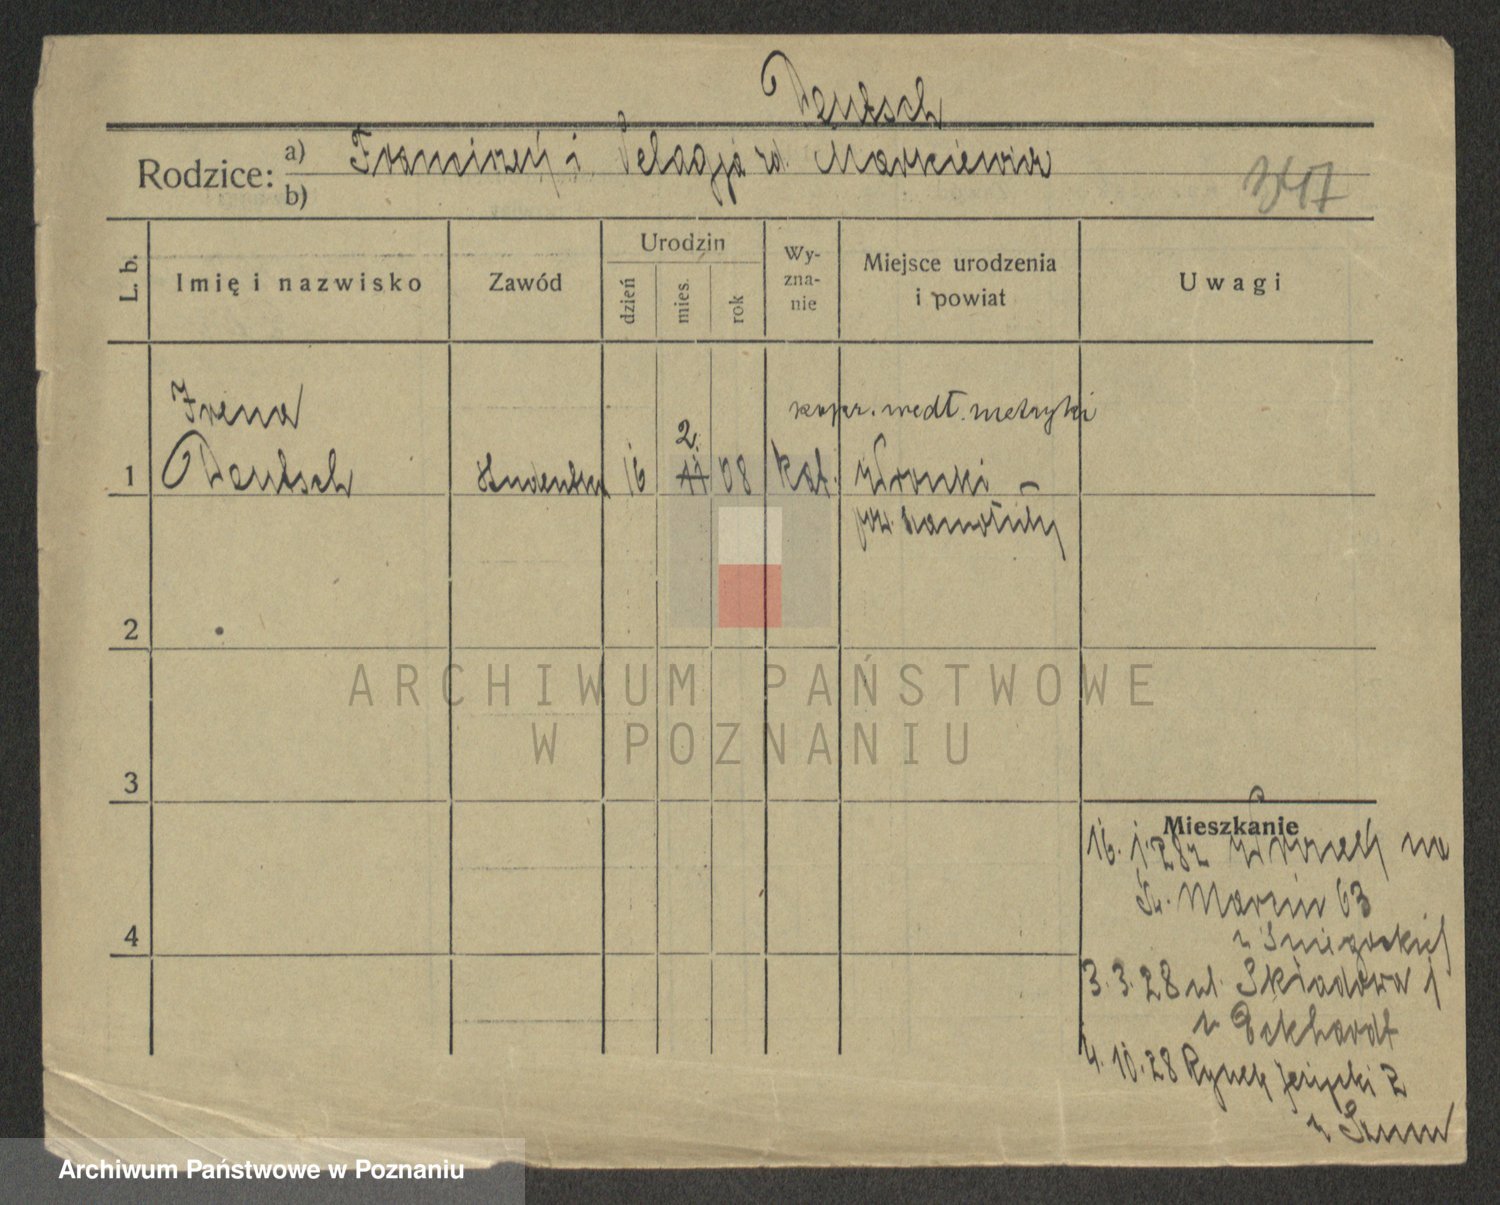 Deutsch
Rodzice: a) Franciszek i Pelagja zd. Markiewicz
b)
347
L. b.
Imię i nazwisko
Zawód
Urodzin
dzień
mies.
rok
Wy-
zna-
nie
Miejsce urodzenia
i powiat
Uwagi
Irena
kopr. wedł. metryki
2.
1 Deutsch Studentka 16 11 08 kat. Wronki –
pow. Szamotuły
2
3
4
ARCHIWUM PAŃSTWOWE
W POZNANIU
Mieszkanie
16. 1. 28 z Wronek na
Św. Marcin 63
u
3. 3. 28 ul. Składowa 1
u Eckhardt
4. 10. 28 Rynek Jeżycki 2
u Szum
Archiwum Państwowe w Poznaniu